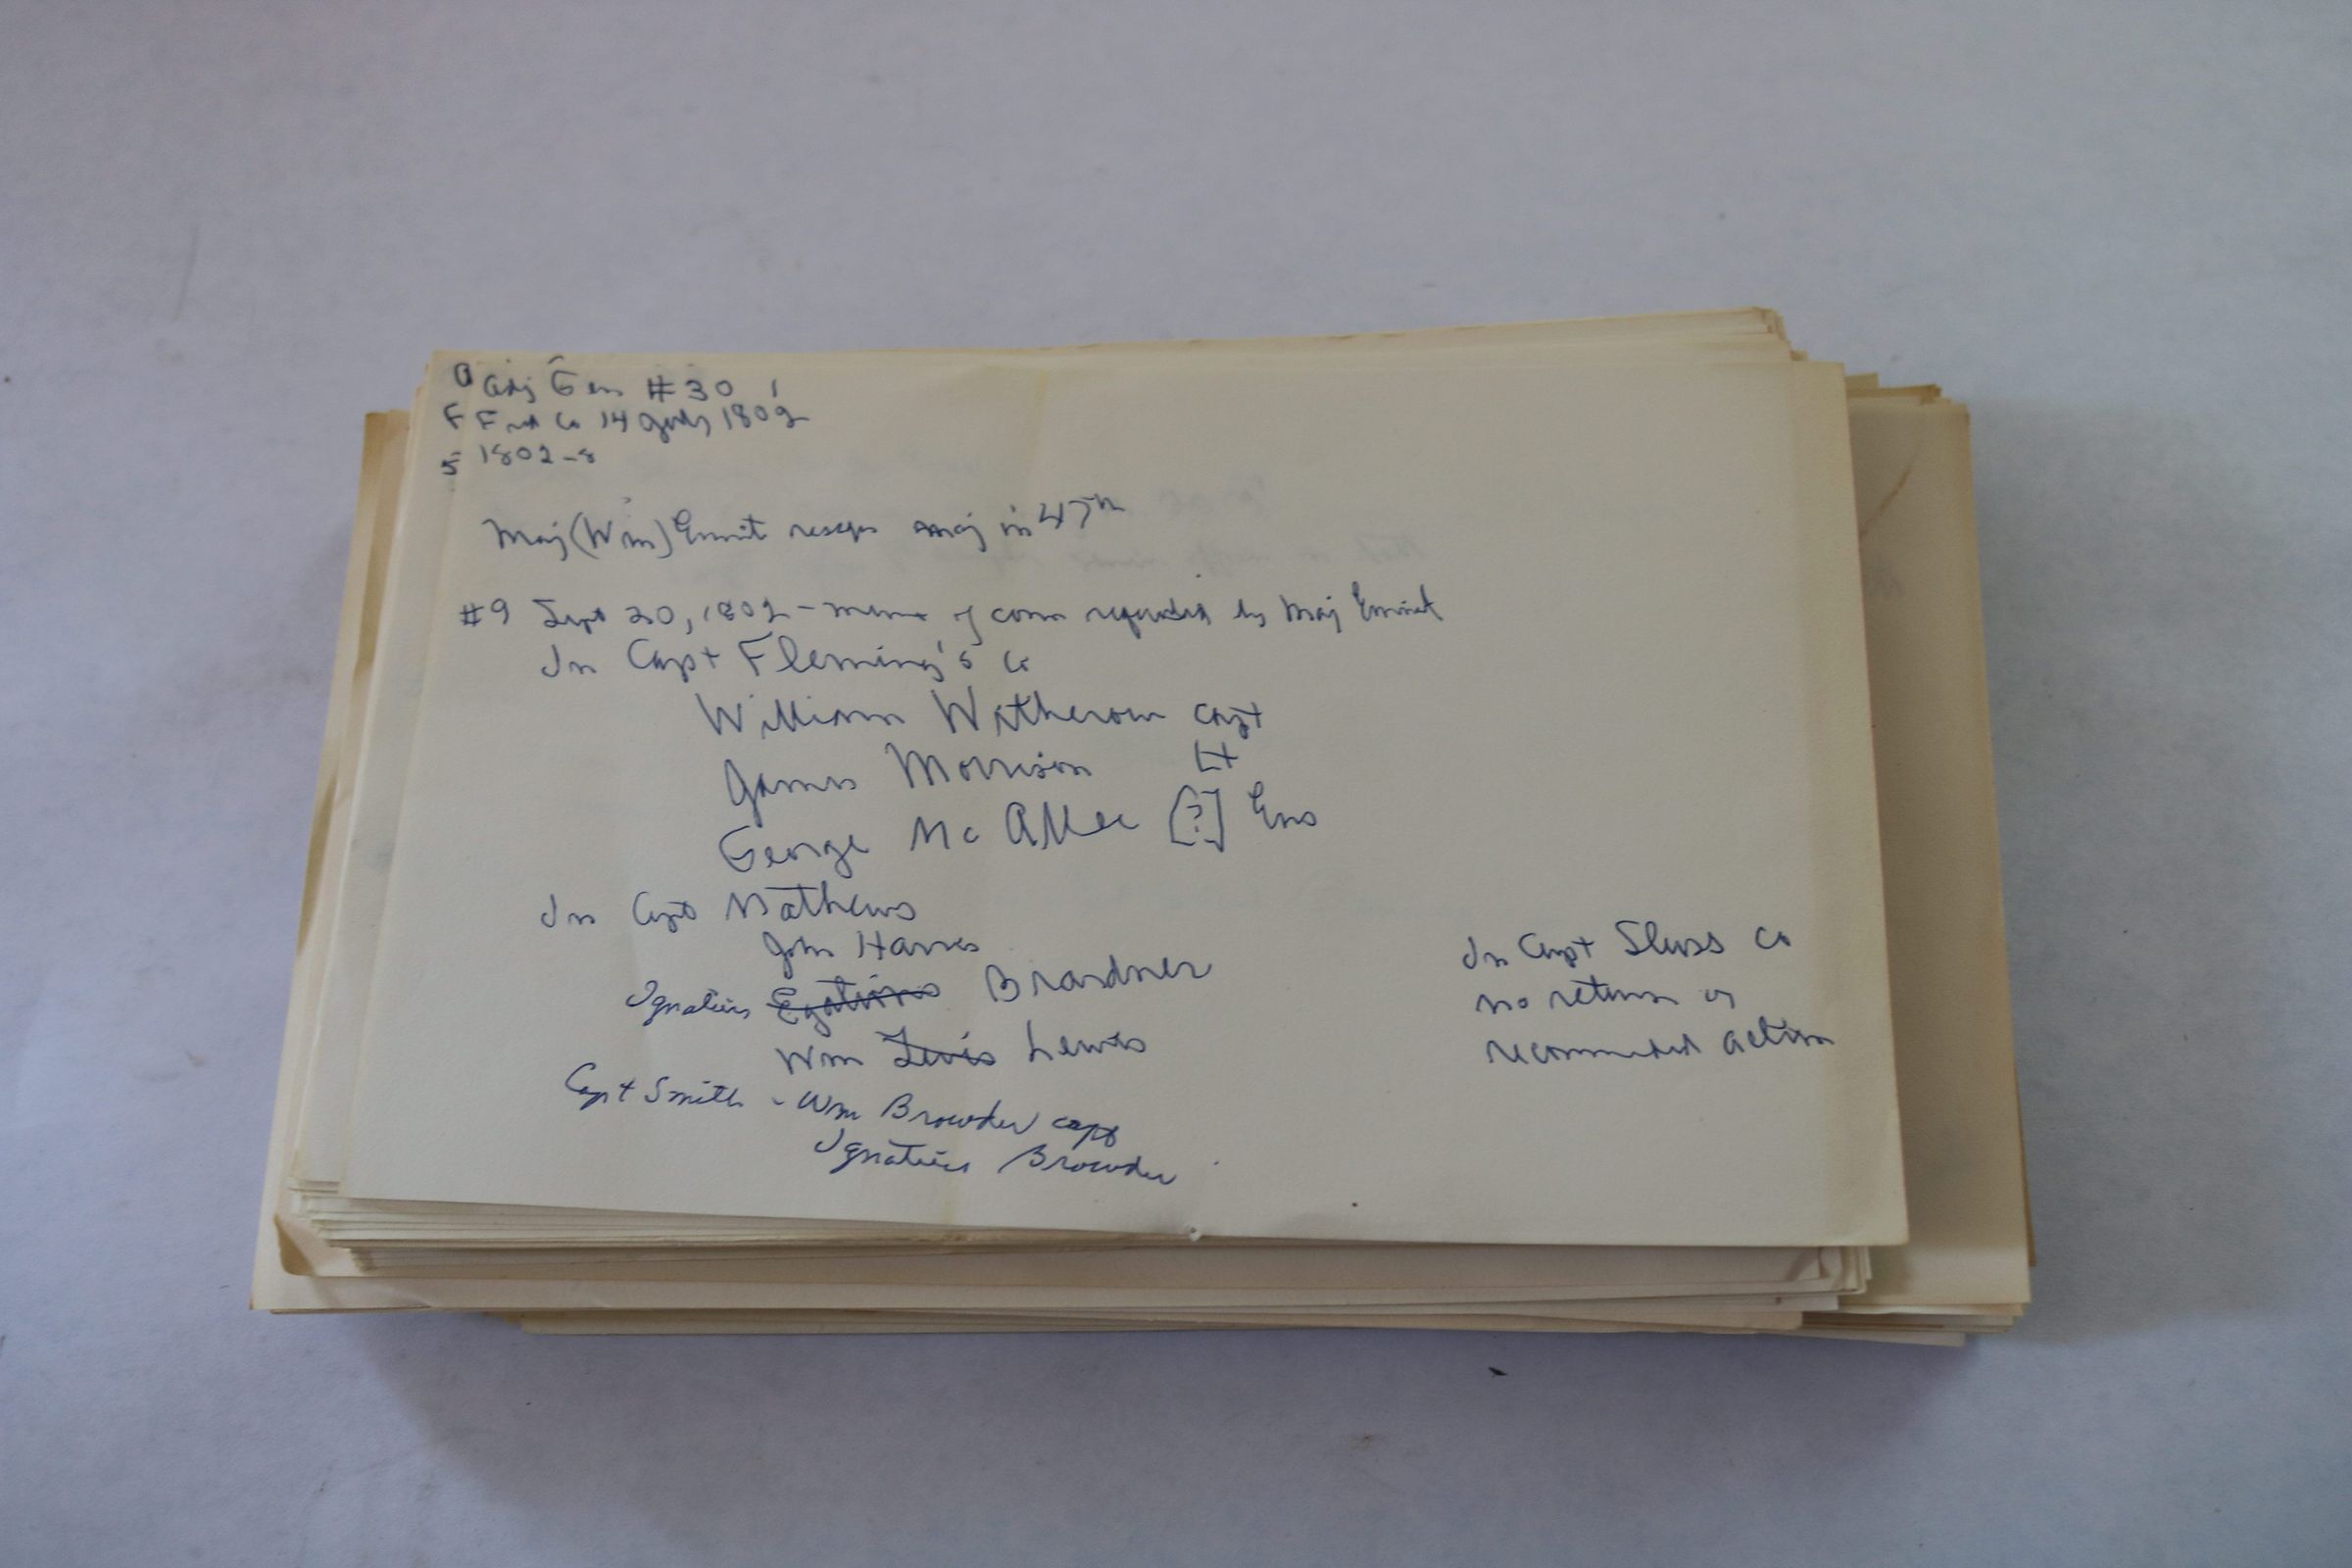 Adj Gen #30
F Fred Co 14 July 1802
5 1802-8
Maj (Wm) Emmit resigns maj in 47th
#9 Sept 20, 1802 - memo of comm requested by Maj Emmit
In Capt Fleming's Co
William Witherow Capt
James Morrison Lt
George McAllee [?] Ens
In Capt Mathews
John Harris
Ignatius Egatious Brardner
Wm Levis Lewis
Capt Smith - Wm Browder capt
Ignatius Browder
In Capt Sluss Co
no return or
recommended action